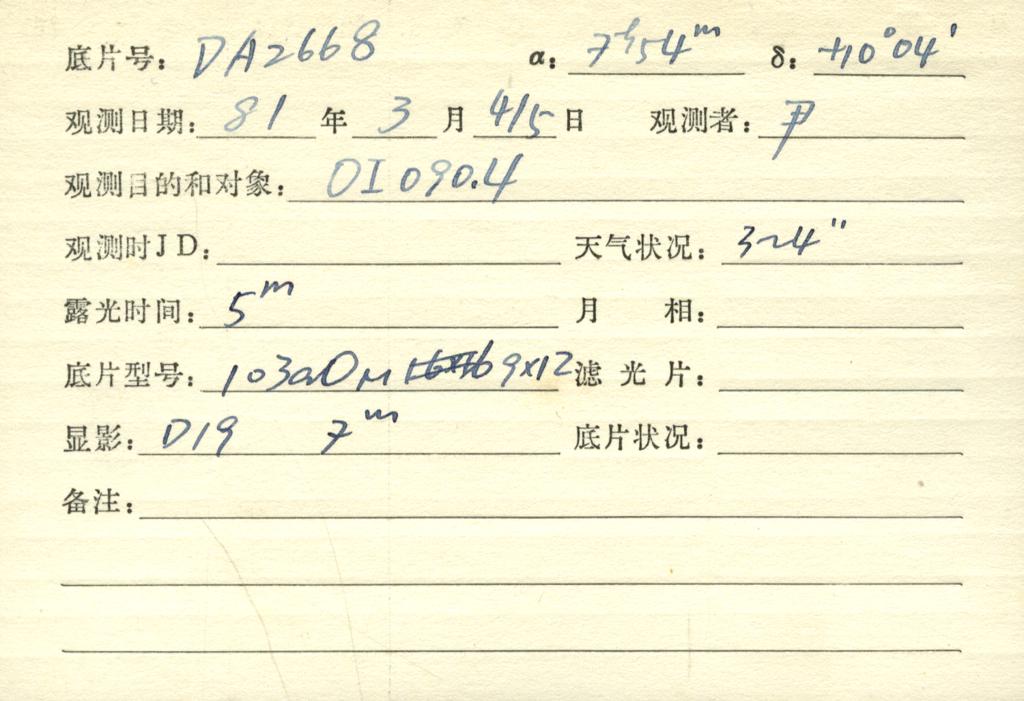 底片号：DA2668 α：7ʰ54ᵐ δ：+10°04′
观测日期：81年3月4/5日 观测者：尹
观测目的和对象：OI 090.4
观测时JD： 天气状况：3~4″
露光时间：5ᵐ 月 相：
底片型号：103aO 9×12 滤 光 片：
显影：D19 7ᵐ 底片状况：
备注：